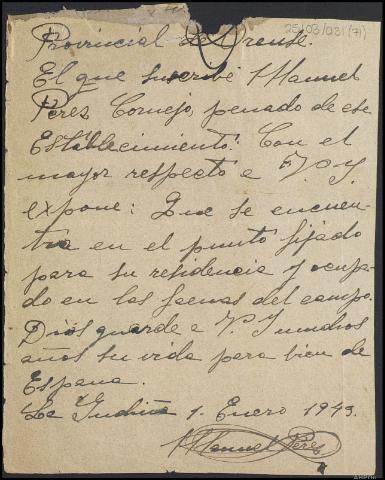 25/03/031(71)
Provincial de Orense.
El que suscribe Manuel
Peres Cornejo, penado de ese
Establecimiento: Con el
mayor respecto a V.Y.
expone: Que se encuen-
tra en el punto fijado
para su residencia y ocupa-
do en las faenas del campo.
Dios guarde a V.Y muchos
años su vida para bien de
España.
La Gudiña 1- Enero 1943.
Manuel Peres